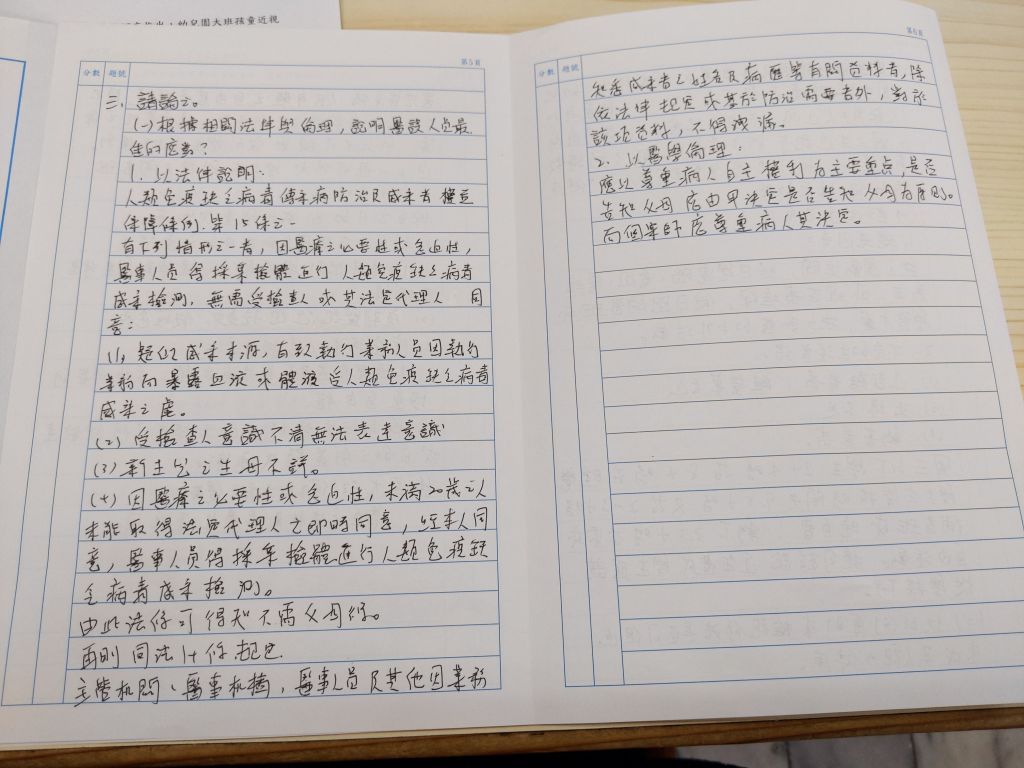 幼兒園大班孩童近視
第5頁
分數 題號
三、請論之。
(一)根據相關法律與倫理,說明醫護人員最
佳的應對?
1. 以法律說明:
人類免疫缺乏病毒傳染病防治及感染者權益
保障條例. 第15條之一
有下列情形之一者,因醫療之必要性或急迫性,
醫事人員得採集檢體進行人類免疫缺乏病毒
感染檢測,無需受檢查人或其法定代理人 同
意:
(1) 疑似感染來源,有致執行業務人員因執行
業務而暴露血液或體液受人類免疫缺乏病毒
感染之虞。
(2) 受檢查人意識不清無法表達意識
(3) 新生兒之生母不詳。
(4) 因醫療之必要性或急迫性,未滿20歲之人
未能取得法定代理人之即時同意,經本人同
意,醫事人員得採集檢體進行人類免疫缺
乏病毒感染檢測。
由此法條可得知不需父母
再則同法14條規定
主管机関、醫事机構,醫事人員及其他因業務
第6頁
分數 題號
知悉感染者之姓名及病歷等有関資料者,除
依法律規定或基於防治需要者外,對於
該項資料,不得洩漏。
2. 以醫學倫理:
應以尊重病人自主權利為主要重点,是否
告知父母應由甲決定是否告知父母為原則。
而個案師應尊重病人其決定。